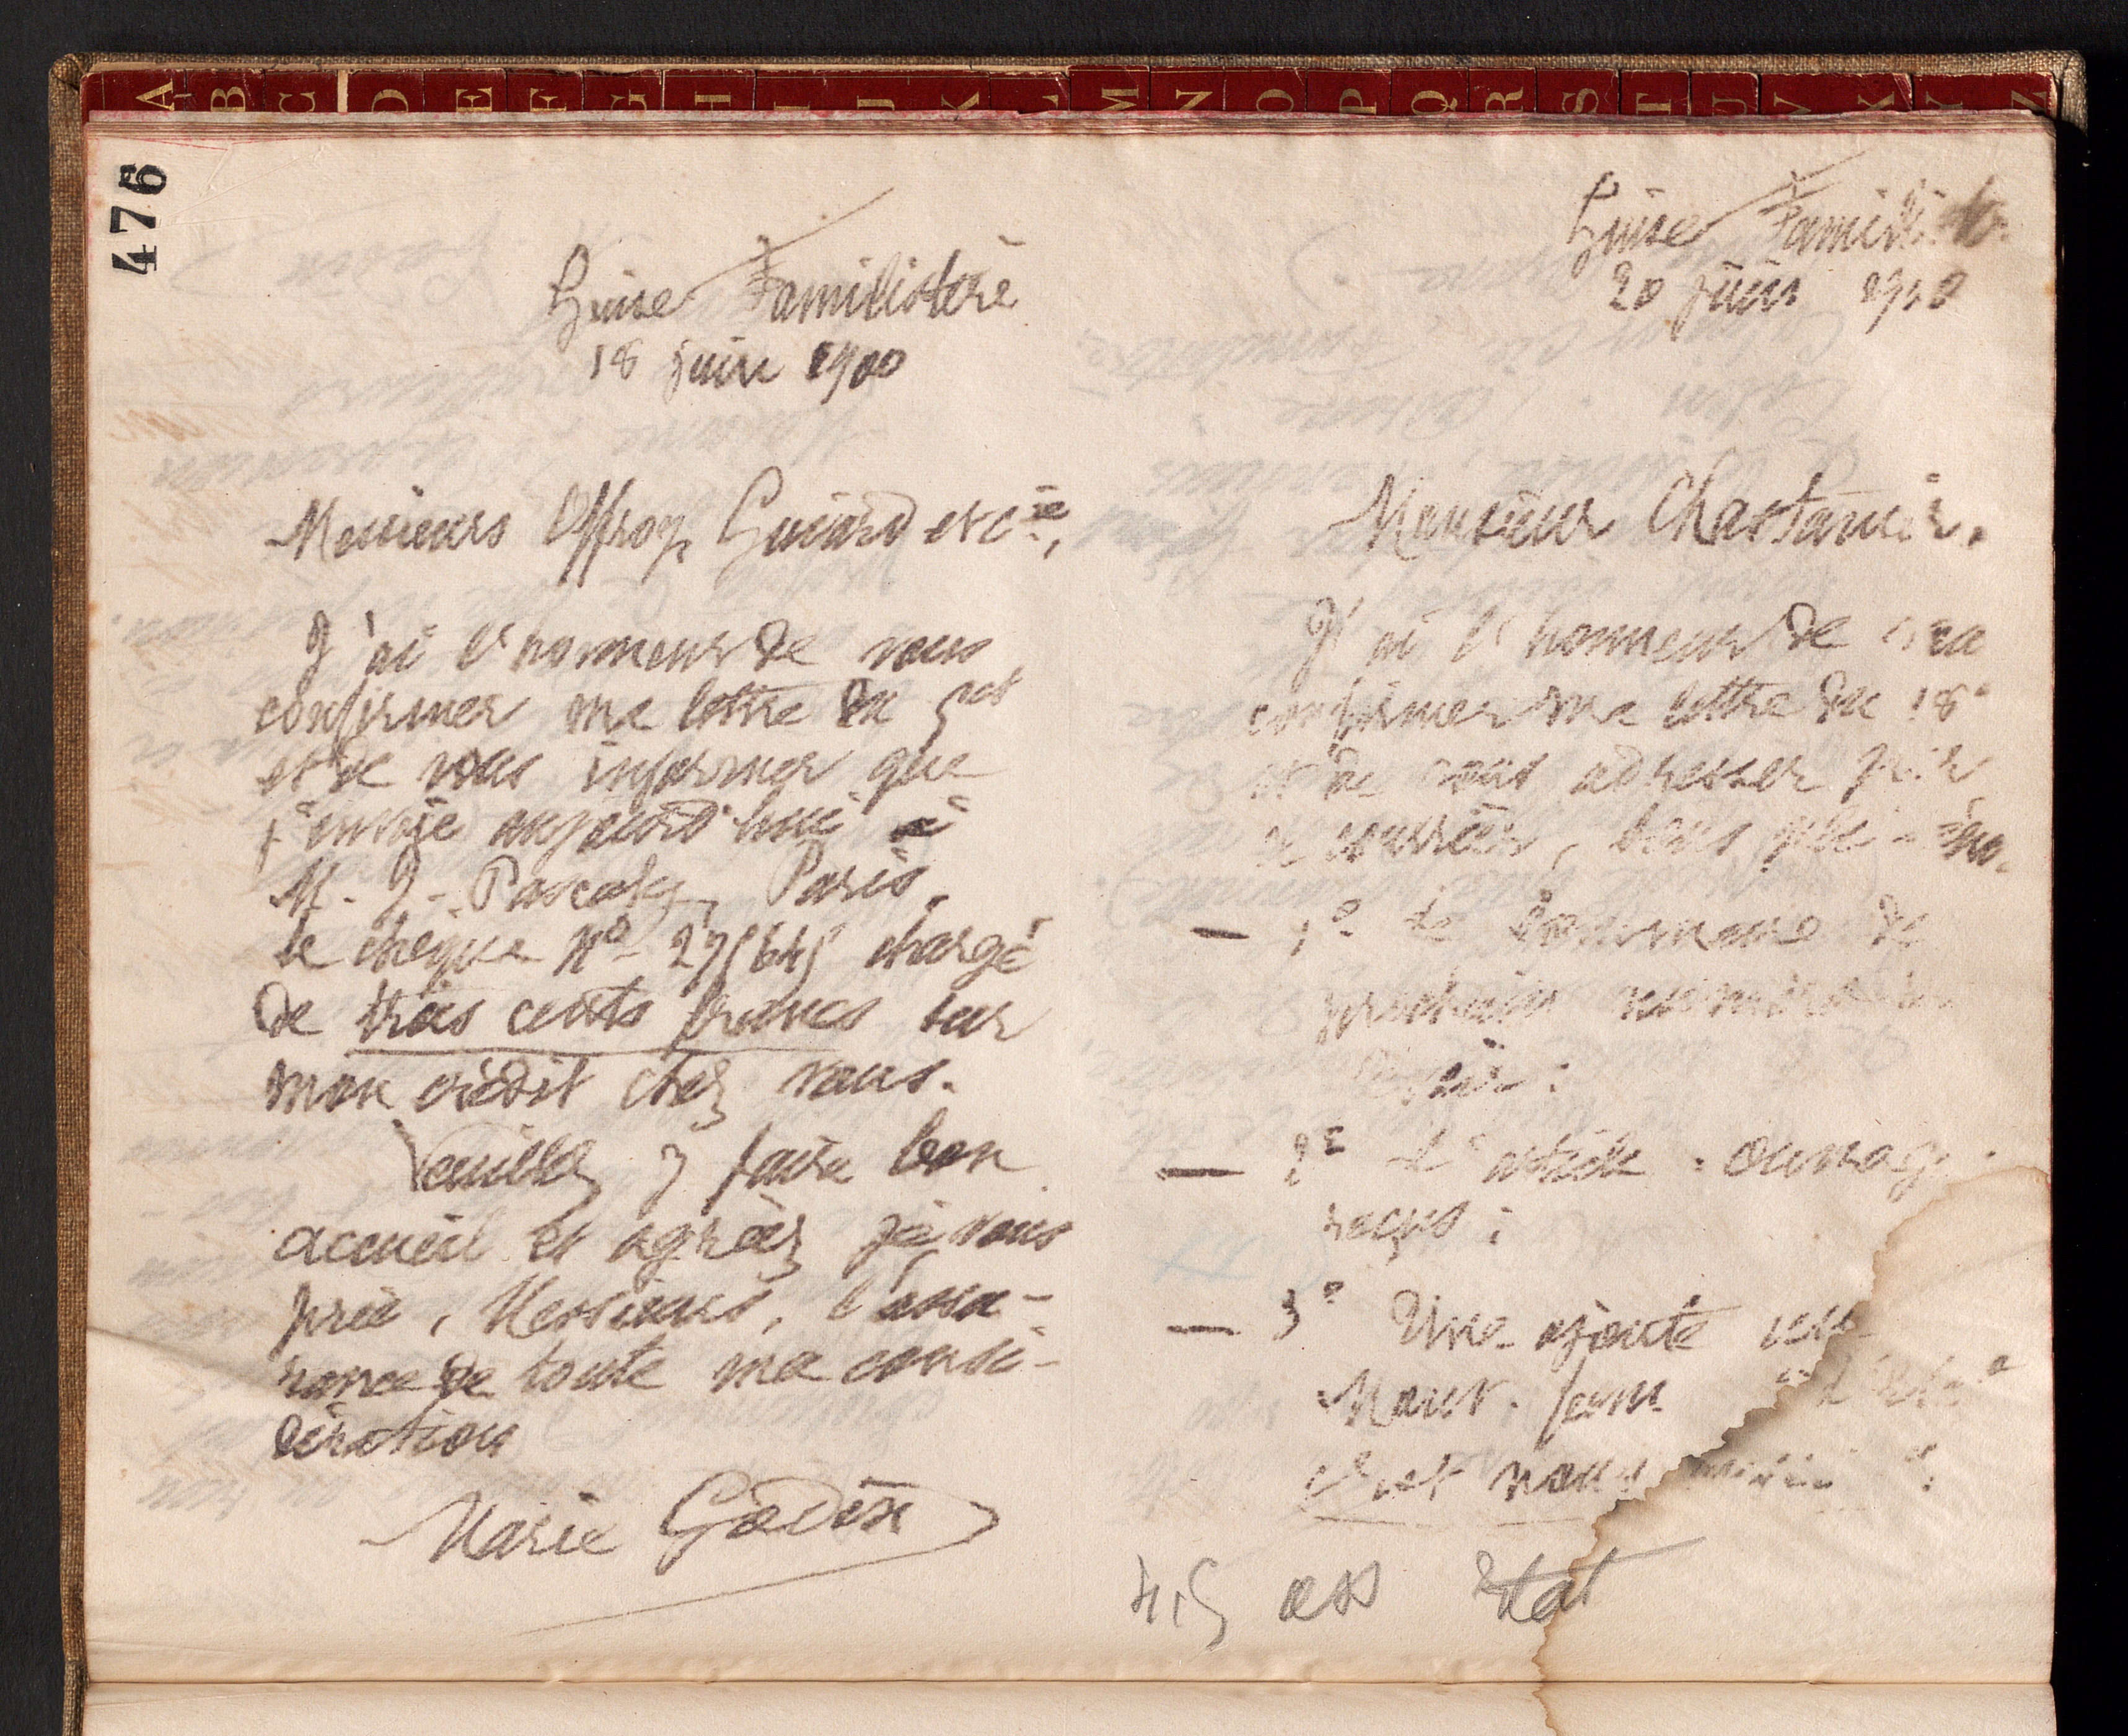 A B C D E F G H I J K L M N O P Q R S T U V X Y Z
476
Guise Familistère
18 juin 1900
Messieurs Offroy, Guiard et Cie,
J'ai l'honneur de vous
confirmer ma lettre du 5 ct
et de vous informer que
j'envoie aujourd'hui à
M. J. Pascaly, Paris,
le chèque No 275645 chargé
de trois cents francs sur
mon crédit chez vous.
Veuillez y faire bon
accueil et agréer, je vous
prie, Messieurs, l'assu-
rance de toute ma consi-
dération
Marie Godin
Guise Familistère
20 juin 1900
Monsieur Chastanier,
J'ai l'honneur de
confirmer ma lettre du 18
et de vous adresser par
ce courrier, sous pli
— 1o Le Sommaire du
prochain numéro
— 2o L'article ouvrages
reçus ;
— 3o Une ajoute
Mouv. fém.
état